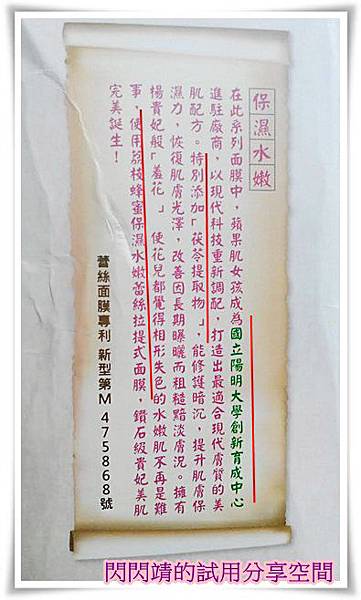 保濕水嫩
在此系列面膜中，蘋果肌女孩成為國立陽明大學創新育成中心
進駐廠商，以現代科技重新調配，打造出最適合現代膚質的美
肌配方。特別添加「茯苓提取物」，能修護暗沉，提升肌膚保
濕力，恢復肌膚光澤，改善因長期曝曬而粗糙黯淡膚況。擁有
楊貴妃般「羞花」 使花兒都覺得相形失色的水嫩肌不再是難
事，使用荔枝蜂蜜保濕水嫩蕾絲拉提式面膜，鑽石級貴妃美肌
完美誕生！
蕾絲面膜專利 新型第M 475868號
閃閃靖的試用分享空間